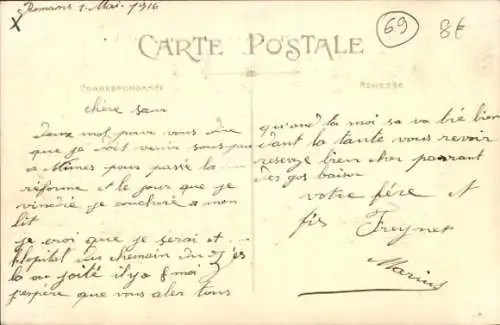 Romans 1 Mai 1916
69
8€
CARTE POSTALE
CORRESPONDANCE
ADRESSE
chère seur
deux mot pour vous dire
que je doit venir sous peu
a Nîmes pour passé la
réforme et le jour que je
viendré je coucheré a mon
lit
je croi que je serai et
hopital du chemain du
la ou joité il y a 8 moi
j'espère que vous ales tous
quand a moi sa va bié bien
dant la tante vous revoir
reseveze bien cher parrant
des gos baiser
votre fére et
fis Freyner
Marius